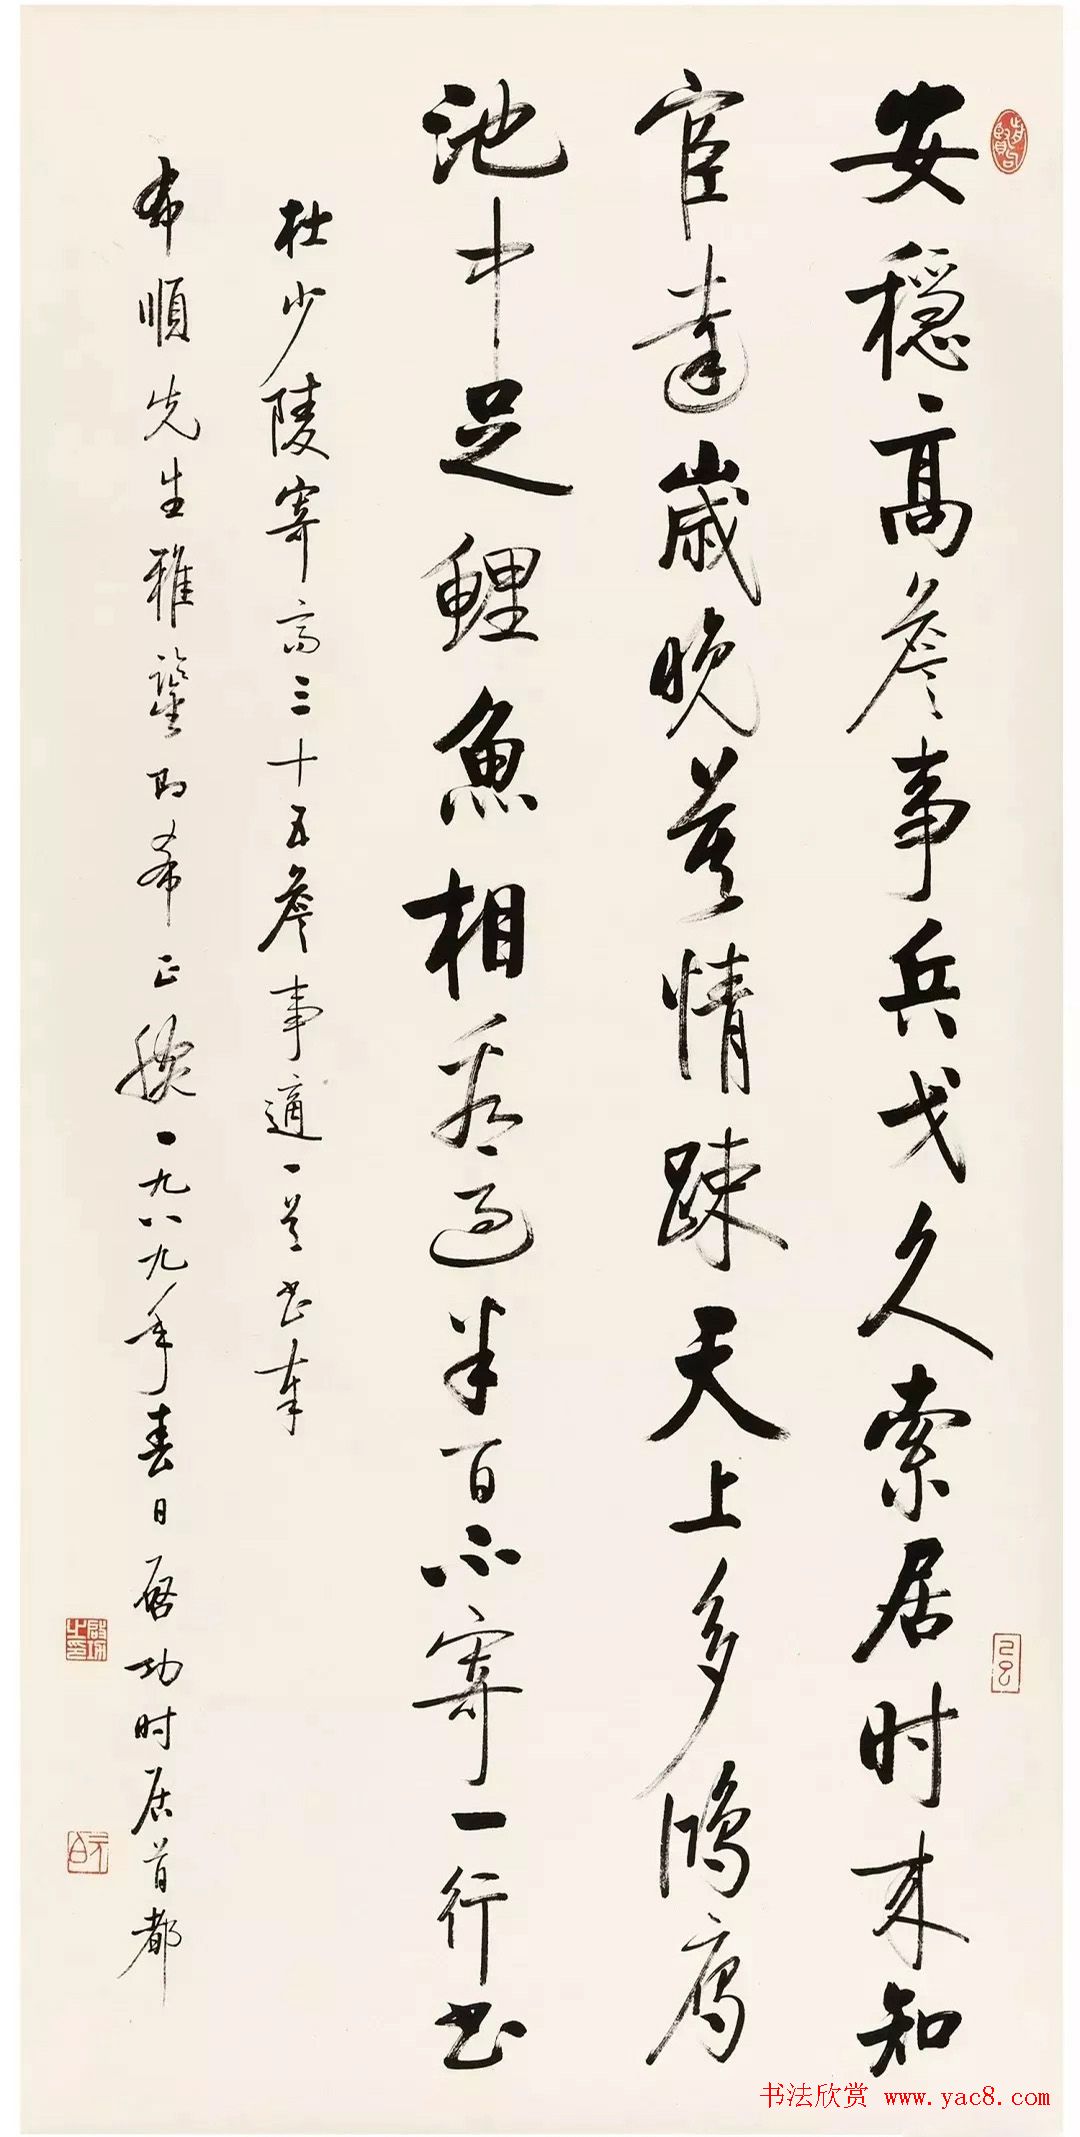 安穩高詹事兵戈久索居时来知
宦達歲晚莫情踈天上多鴻鴈
池中足鯉魚相看過半百不寄一行书
杜少陵寄高三十五詹事適一首书奉
布順先生雅鑒即希正腕一九八九年春日啓功时居首都
啟功之印
元白
书法欣赏 www.yac8.com